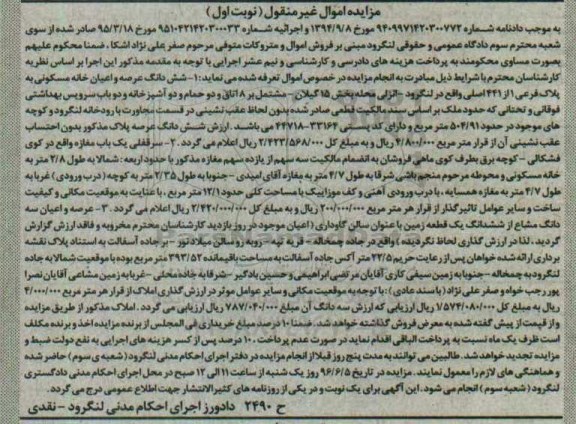 مزایده اموال غیر منقول (نوبت اول)
به موجب دادنامه شماره ۹۴۰۹۹۷۱۴۲۰۳۰۰۷۷۲ مورخ ۱۳۹۴/۹/۸ و اجرائیه شماره ۹۵۱۰۴۲۱۴۲۰۳۰۰۰۳۳ مورخ ۹۵/۳/۱۸ صادر شده از سوی
شعبه محترم سوم دادگاه عمومی و حقوقی لنگرود مبنی بر فروش اموال و متروکات متوفی مرحوم صفر علی نژاد اشکا، ضمنا محکوم علیهم
بصورت مساوی محکومند به پرداخت هزینه های دادرسی و کارشناسی و نیم عشر اجرایی با توجه به مقدمه مذکور این اجرا بر اساس نظریه
کارشناسان محترم با شرایط ذیل مبادرت به انجام مزایده در خصوص اموال تعرفه شده می نماید: ۱- شش دانگ عرصه و اعیان خانه مسکونی به
پلاک فرعی ۱ از ۴۴۱ اصلی واقع در لنگرود - انزلی محله بخش ۱۸ گیلان - مشتمل بر ۸ اتاق و دو حمام و دو آشپزخانه و دو باب سرویس بهداشتی
فوقانی و تحتانی که حدود ملک بر اساس سند مالکیت قطعی صادر شده بدون لحاظ عقب نشینی در قسمت مجاورت با رودخانه لنگرود و کوچه
های موجود در حدود ۵۰۴/۹۱ متر مربع و دارای کد پستی ۳۳۱۶۴-۴۴۷۱۸ می باشد. ارزش شش دانگ عرصه پلاک مذکور بدون احتساب
عقب نشینی آن از قرار متر مربع ۴/۸۰۰/۰۰۰ ریال و به مبلغ کل ۲/۴۲۳/۵۶۸/۰۰۰ ریال اعلام می گردد. ۲- سرقفلی یک باب مغازه واقع در کوی
فشکالی - کوچه برق بطرف کوی ماهی فروشان به انضمام مالکیت سه سهم از یازده سهم مغازه مذکور با حدود اربعه: شمالا به طول ۲/۸ متر به
خانه مسکونی و محوطه مرحوم منجم باشی شرقا به طول ۴/۷ متر به مغازه آقای امیدی - جنوبا به طول ۲/۳۵ متر به کوچه (درب ورودی) غربا به
طول ۴/۷ متر به مغازه همسایه، با درب ورودی آهنی و کف موزاییک با مساحت کلی حدود ۱۲/۱ متر مربع، با عنایت به موقعیت مکانی و کیفیت
ساخت و سایر عوامل تاثیرگذار از قرار هر متر مربع ۲۰۰/۰۰۰/۰۰۰ ریال و به مبلغ کل ۲/۴۲۰/۰۰۰/۰۰۰ ریال اعلام می گردد. ۳- عرصه و اعیان سه
دانگ مشاع از ششدانگ یک قطعه زمین با عنوان سالن گاوداری (اعیان موجود در روز بازدید کارشناسان محترم مخروبه و فاقد ارزش گزارش
گردید، لذا در ارزش گذاری لحاظ نگردیده) واقع در جاده چمخاله - قریه تپه - روبه روی سالن میلاد نور - بر جاده آسفالت به استناد پلاک نقشه
برداری ارائه شده خواهان پس از رعایت حریم ۲۲/۵ متر آکس جاده آسفالت به مساحت باقیمانده ۳۹۳/۵۲ متر مربع بوده با موقعیت شمالا به جاده
لنگرود به چمخاله - جنوبا به زمین سیفی کاری آقایان مرتضی ابراهیمی و حسین یادگیر - شرقا به جاده محلی - غربا به زمین مشاعی آقایان نصرا
پور رجب خواه و صفر علی نژاد (با سند عادی): با توجه به موقعیت مکانی و سایر عوامل موثر در ارزش گذاری املاک از قرار هر متر مربع ۴/۰۰۰/۰۰۰
ریال به مبلغ کل ۱/۵۷۴/۰۸۰/۰۰۰ ریال ارزیابی که ارزش سه دانگ آن مبلغ ۷۸۷/۰۴۰/۰۰۰ ریال ارزیابی می گردد. املاک مذکور از طریق مزایده
و از قیمت از پیش گفته شده به معرض فروش گذاشته خواهد شد. ضمنا ۱۰ درصد مبلغ خریداری فی المجلس از برنده مزایده اخذ و برنده مکلف
است ظرف یک ماه نسبت به پرداخت الباقی اقدام نماید در صورت عدم پرداخت، ۱۰ درصد، پس از کسر هزینه های اجرایی به نفع دولت ضبط و
مزایده تجدید خواهد شد. طالبین می توانند به مدت پنج روز قبل از انجام مزایده در دفتر اجرای احکام مدنی لنگرود (شعبه ی سوم) حاضر شده
و هماهنگی های لازم را معمول نمایند. مزایده در تاریخ ۹۶/۶/۵ روز یک شنبه از ساعت ۱۱ الی ۱۲ صبح در محل اجرای احکام مدنی دادگستری
لنگرود (شعبه سوم) انجام می شود. این آگهی برای یک نوبت و در یکی از روزنامه های کثیرالانتشار جهت اطلاع عمومی درج می گردد.
ح ۲۴۹۰ دادورز اجرای احکام مدنی لنگرود - نقدی